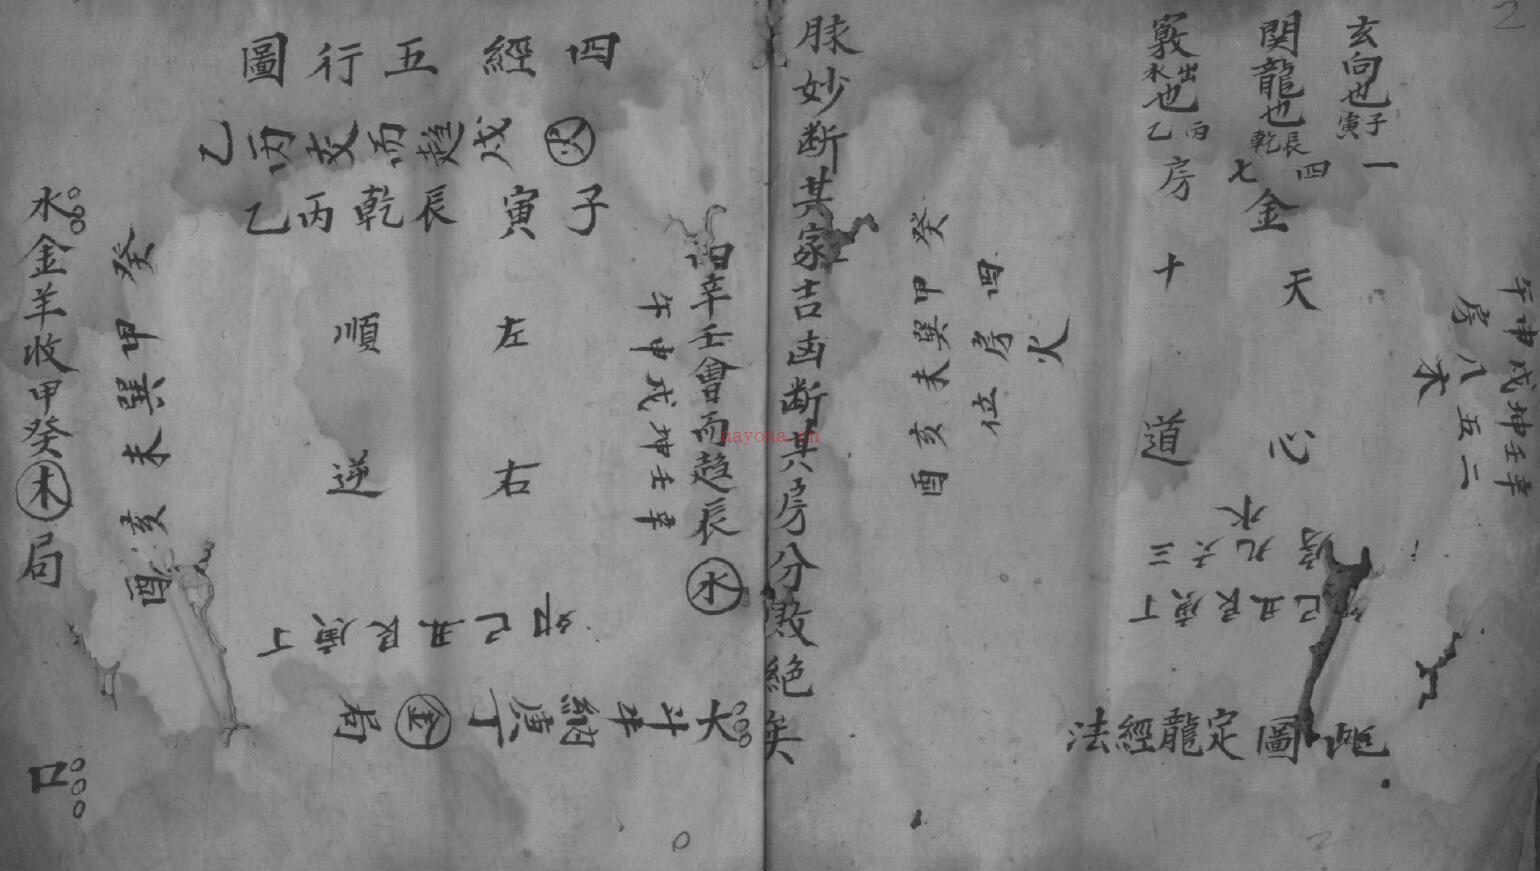 玄向也子寅
関龍也乾辰
竅出水也乙丙
一四七
房
金
午申戌坤壬辛
房八五二
水
天心
十道
火
四房位
癸甲巽未亥酉
水
房九六三
巳丑艮庚丁
此圖定龍經法
脉妙断其家吉凶断其房分敗絶矣
四經五行圖
火戌趋而交丙乙
子寅辰乾丙乙
辛壬會而趋辰水
午申戌坤壬辛
左順
右逆
卯巳丑艮庚丁
大斗牛納庚丁金局
癸甲巽未亥酉
水金羊收甲癸木局
口
nayona.cn